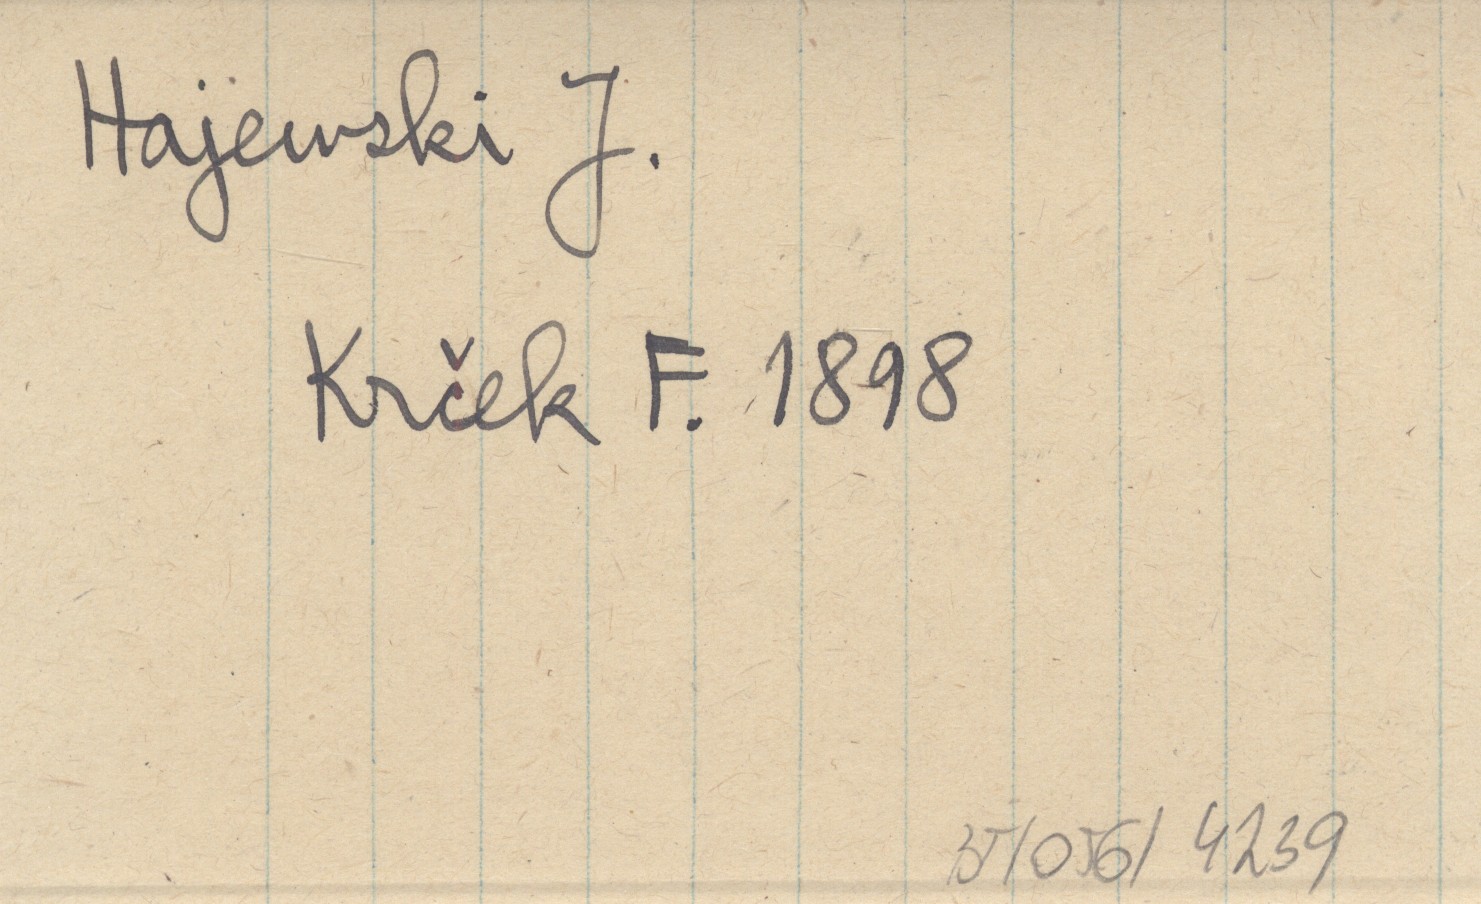 Hajewski J.
Krček F. 1898
35/056/ 4239